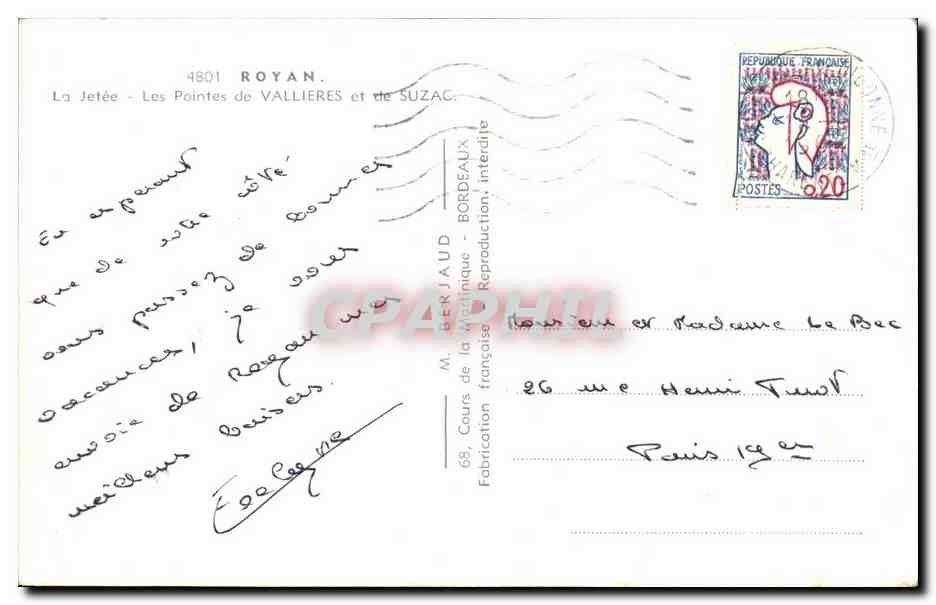 4801 ROYAN.
La Jetée - Les Pointes de VALLIERES et de SUZAC.
En espérant
que de votre côté
vous passez de bonnes
vacances, je vous
envoie de Royan mes
meilleurs baisers.
M. BERJAUD
68, Cours de la Martinique - BORDEAUX
Fabrication française - Reproduction interdite
REPUBLIQUE FRANÇAISE
POSTES 0,20
18
CPAPHIL
Monsieur et Madame Le Bec
26 rue Henri Turot
Paris 19em